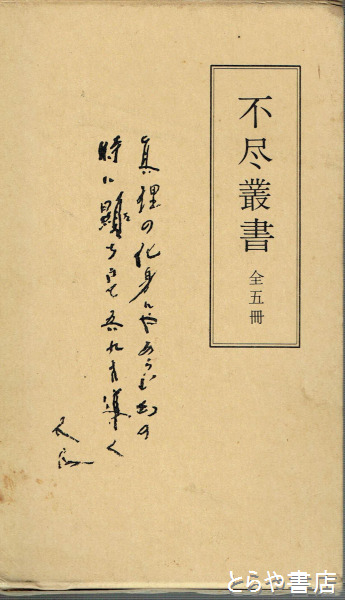 不尽叢書
全五冊
真理の化身にやあらむ幻の
時に顕ち来て吾れを導く
とらや書店